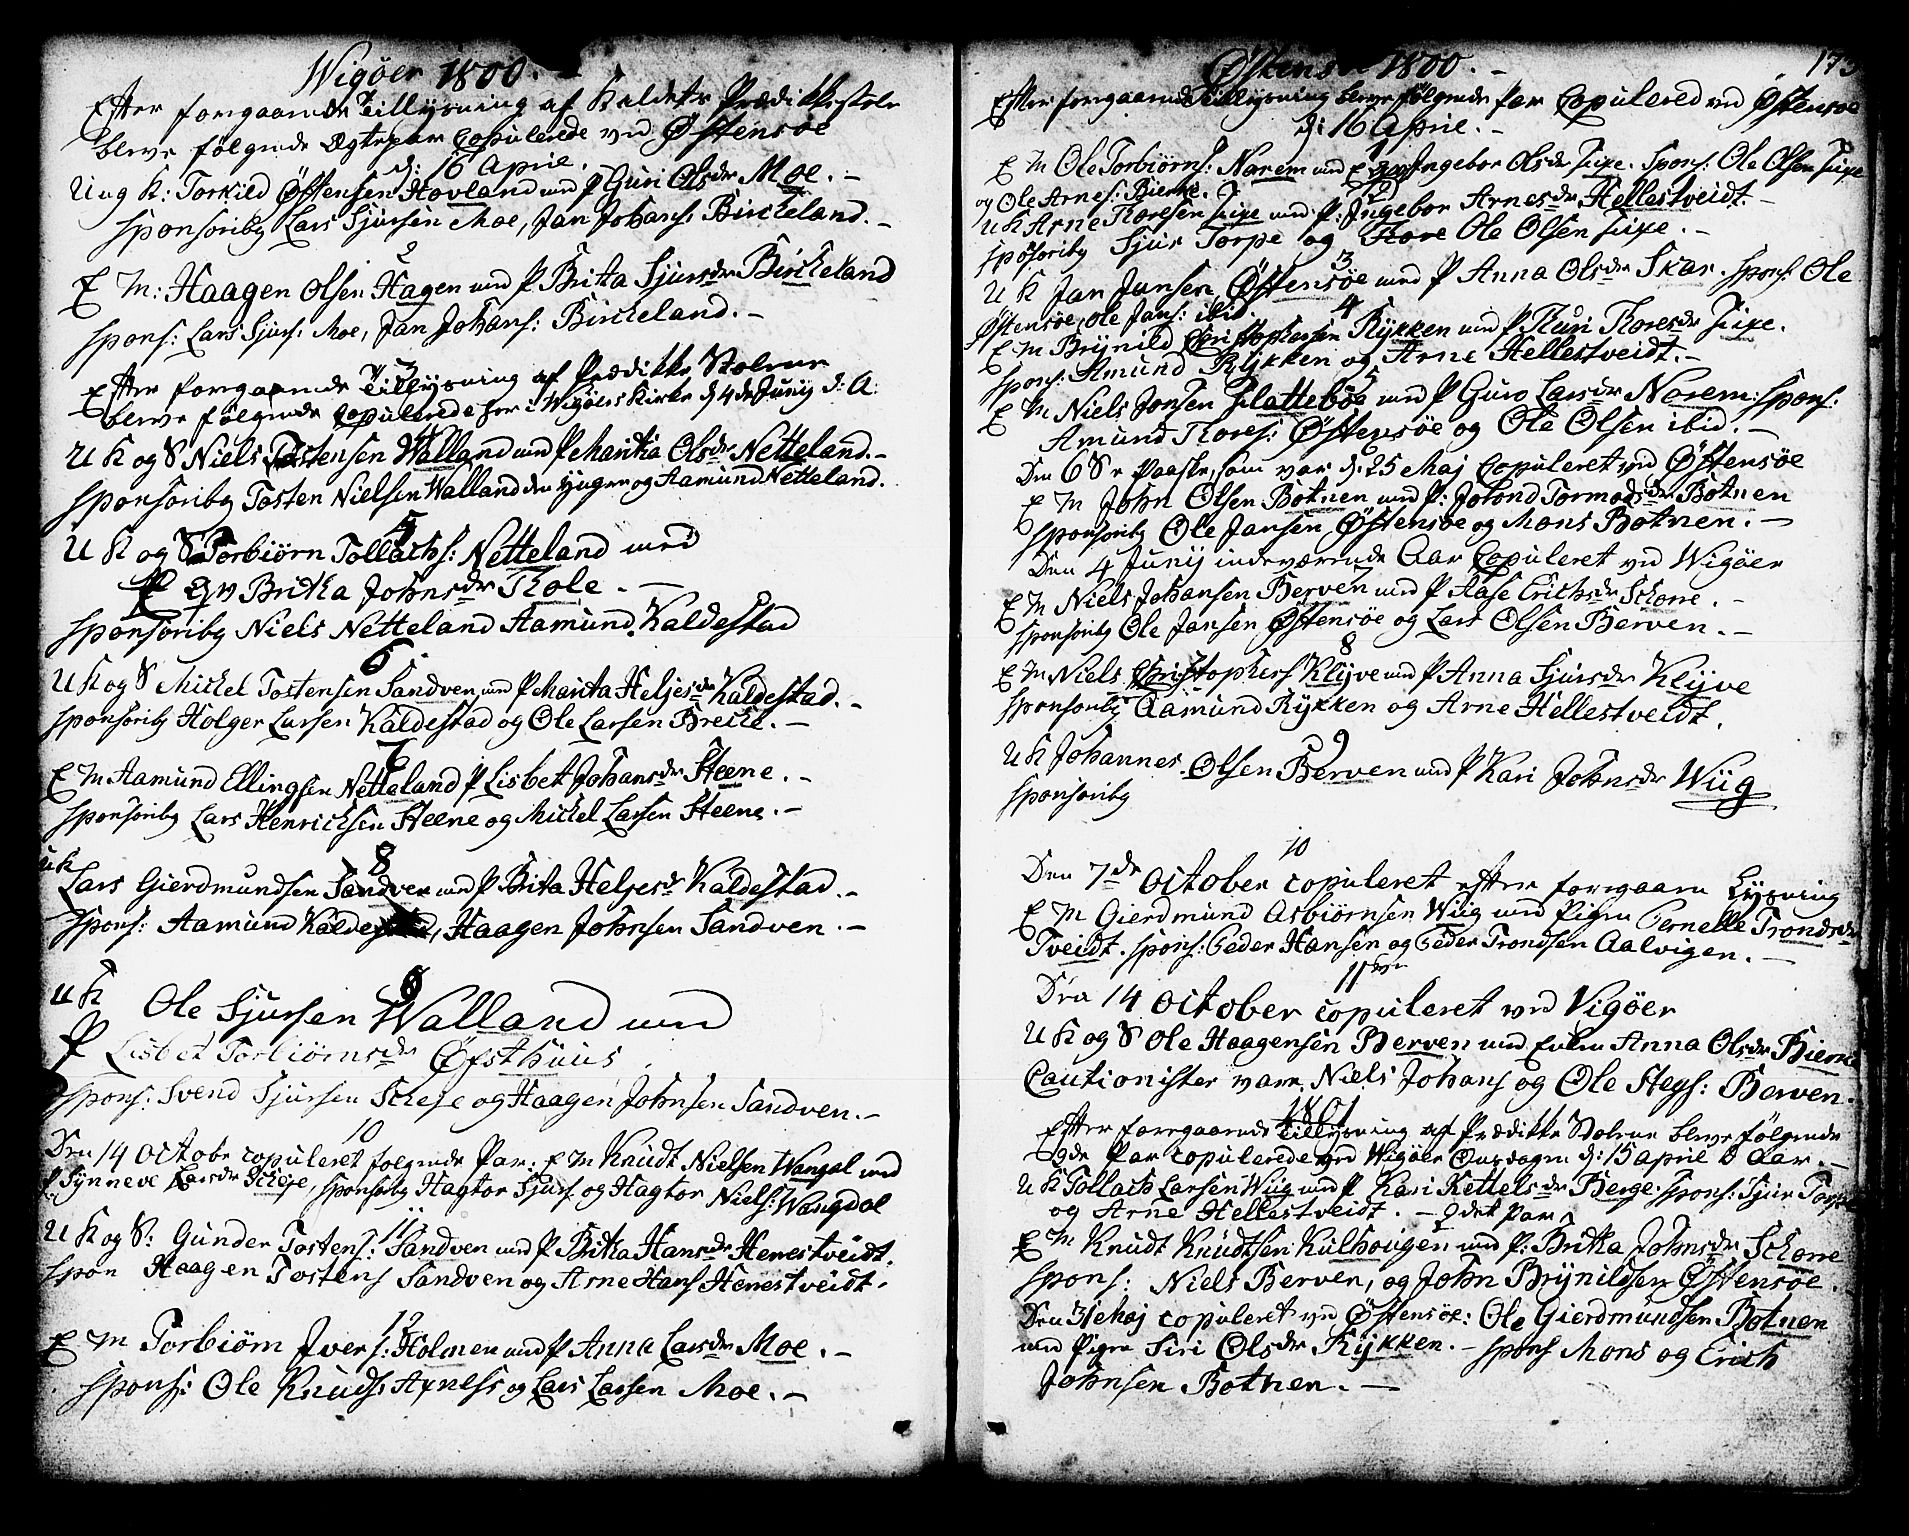 Wigøer 1800.
Efter foregaaende Tillysning af Kaldets Prædikkestole
bleve følgende Ægtepar Copulerede ved Østensøe
d: 16 April.
1
Ung K: Torkild Østensen Hovland med P Guri Olsdr Moe. -
Sponsoribg Lars Sjursen Moe, Jan Johans: Birckeland. -
2
E M: Haagen Olsen Hagen med P Brita Sjursdr Birckeland
Spons: Lars Sjurs: Moe, Jan Johans: Birckeland. -
Efter foregaaende Tillysning af Prædikke Stolene
bleve følgende Copulerede her i Wigøers Kirke d 4de Junij d: A:
U K og S Niels Tostensen Walland med P Marita Olsdr Netteland. -
Sponsoribg Tosten Nielsen Walland den yngre og Aamund Netteland.
5
U K og S Torbiørn Tollachs: Netteland med
P Britha Johnsdr Thole. -
Sponsoribg Niels Netteland Aamund Kaldestad
6
U K og S Michel Tostensen Sandven med P Marita Heljesdr Kaldestad. -
Sponsoribg Holger Larsen Kaldestad og Ole Larsen Brecke. -
7
E M Aamund Ellingsen Netteland P Lisbet Johansdr Steene. -
Sponsoribg Lars Henrichsen Steene og Michel Larsen Steene. -
8
U K Lars Gierdmundsen Sandven med P Brita Heljesdr Kaldestad. -
Spons: Aamund Kaldestad, Haagen Johnsen Sandven. -
9
U K Ole Sjursen Walland med
P Lisbet Torbiørnsdr Øfsthuus
Spons: Svend Sjursen Scheje og Haagen Johnsen Sandven. -
10
Den 14 Octobr copuleret følgende Par: E M Knudt Nielsen Wangdal med
P Synneve Larsdr Scheje, Sponsoribg Hagtor Sjurs og Hagtor Niels: Wangdal
11
U K og S: Gunder Tostens: Sandven med P Britha Hansdr Henestveidt.
Spon Haagen Tostens Sandven og Arne Hans Henestveidt.
12
E M Torbiørn Ivers: Holmen med P Anna Larsdr Moe. -
Spons: Ole Knuds Axnes og Lars Larsen Moe. -
Østensøe 1800. - 173
Efter foregaaende Tillysning bleve følgende Par Copulered ved Østensøe
d: 16 April. -
1
E M Ole Torbiørns: Narem med E Ingebor Olsdr Fixe. Spons: Ole Olsen Fixe
og Ole Arnes: Bierke.
2
U K Arne Thoresen Fixe med P: Ingebor Arnesdr Hellestveidt. -
Sposoribg Sjur Torpe og Thore Ole Olsen Fixe. -
3
U K Jan Jansen Østensøe med P Anna Olsdr Skar. Spons: Ole
Østensøe, Ole Jans: ibid.
4
E M Brÿnild Christophersen Rÿkken med P. Thuri Thoresdr Fixe.
Spons: Amund Rÿkken og Arne Hellestveidt. -
5
E M Niels Jonsen Flattebøe med P Guro Larsdr Norem: Spons:
Amund Thores: Østensøe og Ole Olsen ibid. -
Den 6 S. e Paaske, som var d: 25 Maj Copuleret ved Østensøe
E M John Olsen Botnen med P: Jorond Tormodsdr Botnen
Sponsoribg Ole Jansen Østensøe og Mons Botnen. -
Den 4 Junij indeværende Aar Copuleret ved Wigöer
7
E M Niels Johansen Berven med P Aase Erichsdr Schorre. -
Sponsoribg Ole Jansen Østensøe og Lars Olsen Berven. -
8
E M Niels Christophers Klÿve med P Anna Sjursdr Klÿve
Sponsoribg Aamund Rÿkken og Arne Hellestveidt.
9
U K Johannes Olsen Berven med P Kari Johnsdr Wiig
Sponsoribg
10
Den 7de October copuleret efter foregaaen Lysning
E M Gierdmund Asbiørnsen Wiig med Pigen Pernelle Trondsdr
Tveidt. Spons: Peder Hansen og Peder Trondsen Aalvigen. -
11
Den 14 October copuleret ved Vigøer
U K og S Ole Haagensen Berven med Enken Anna Olsdr Bierke
Cautionister vare Niels Johans og Ole Steffs: Berven.
1801
Efter foregaaende Tillysning af Prædikke Stolene bleve følgende
Par copulerede ved Wigøer Onsdagen d: 15 April d Aar. -
U K Tollach Larsen Wiig med P Kari Kettelsdr Berge. Spons: Sjur Torpe
og Arne Hellestveidt. - 2det Par
E M Knudt Knudtsen Kulhougen med P: Britha Johnsdr Schorre
Spons: Niels Berven, og John Brÿnildsen Østensøe.
Den 31 Maj copuleret ved Østensøe: Ole Gierdmundsen Botnen
med Pigen Siri Olsdr Rÿkken. - Spons Mons og Erich
Johnsen Botnen. -